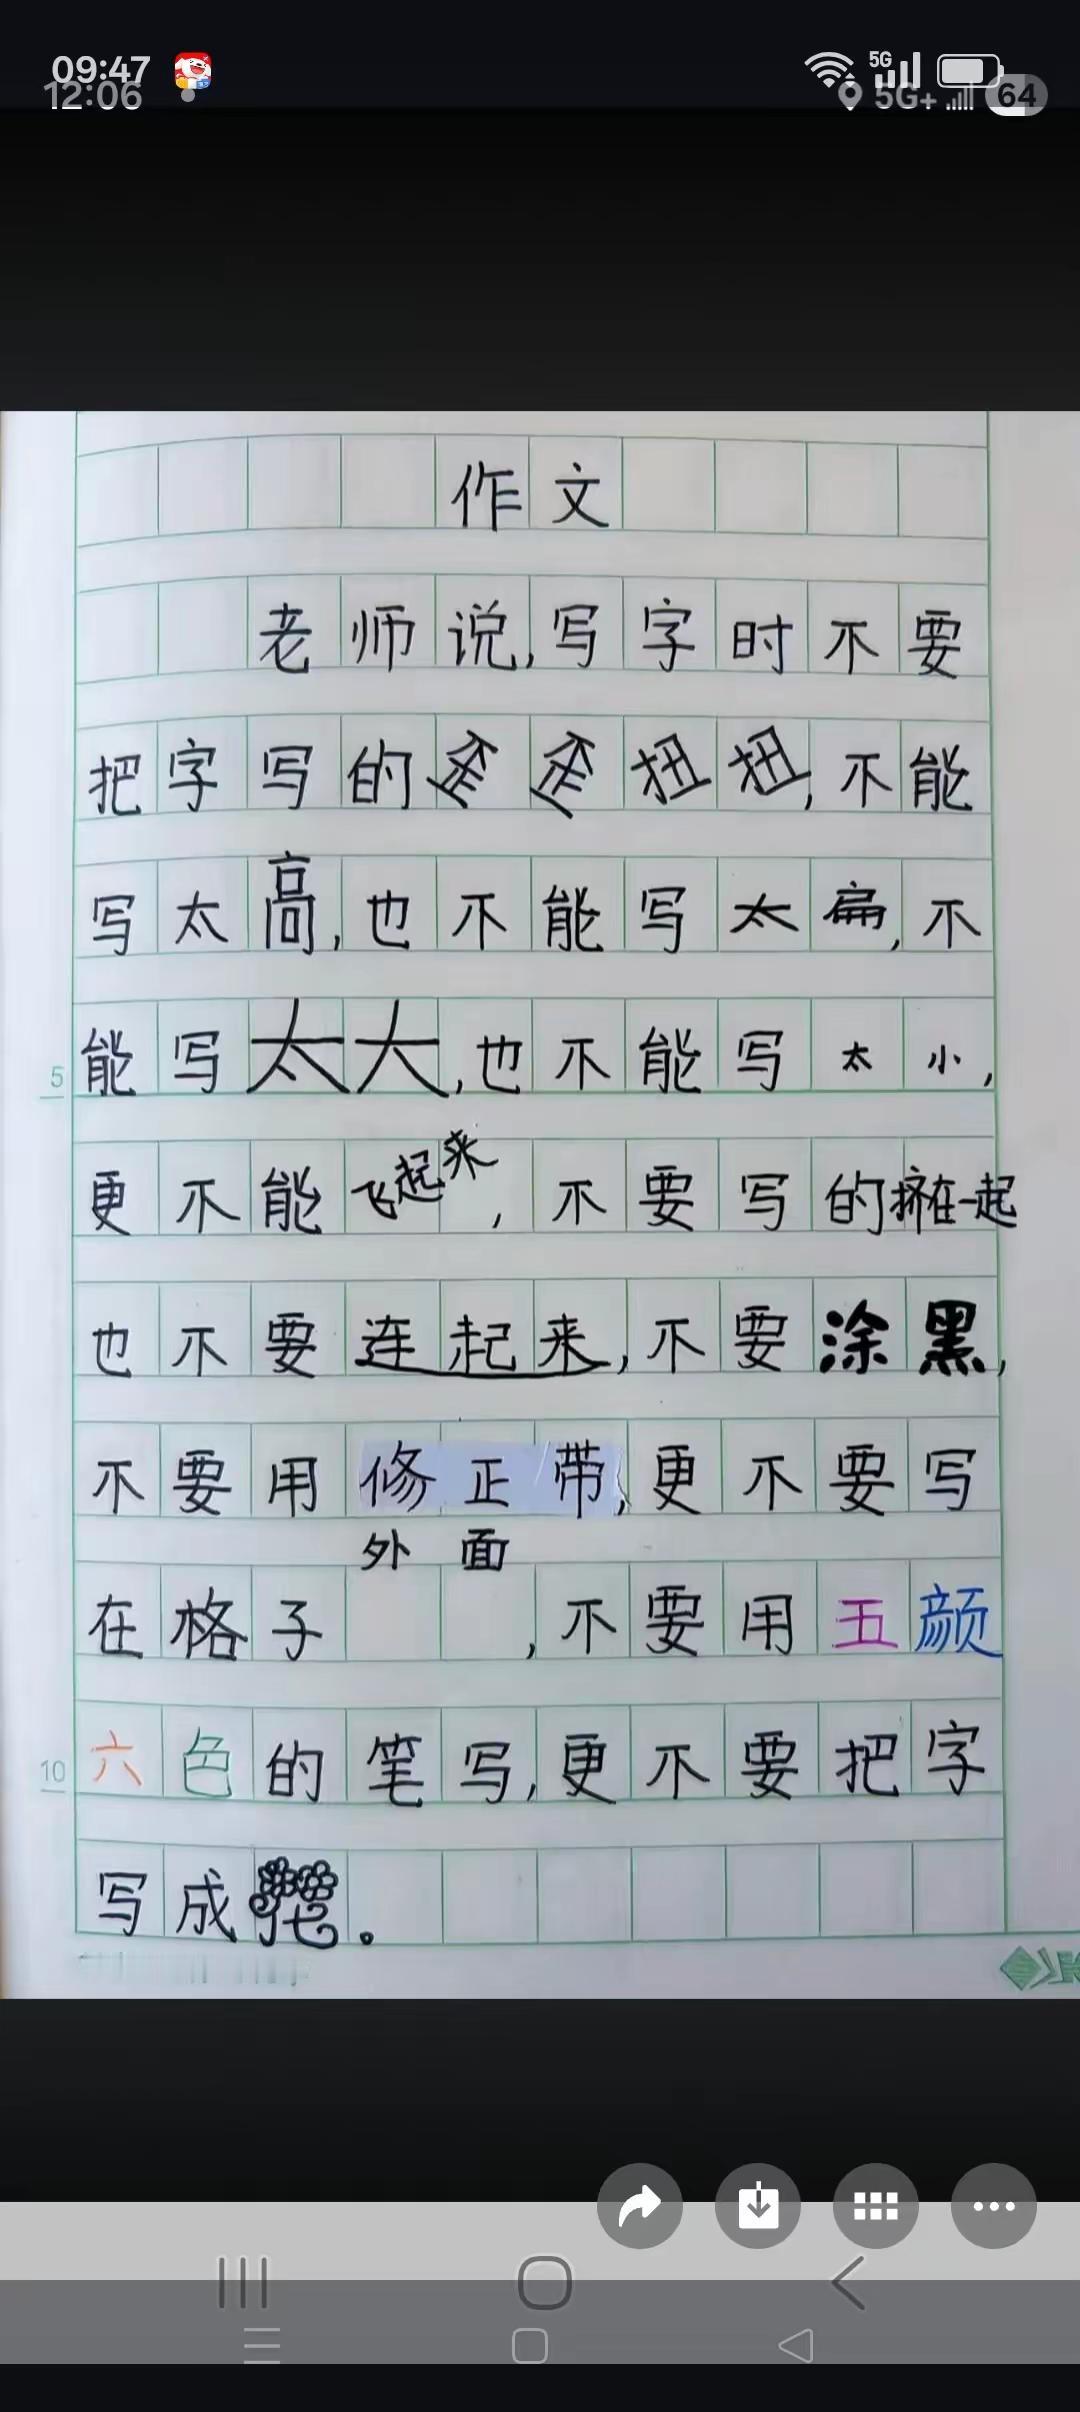 09:47
12:06
5G
5G+
64
作文
老师说,写字时不要
把字写的歪歪扭扭,不能
写太高,也不能写太扁,不
5
能写太大,也不能写太小,
更不能飞起来,不要写的挤在一起
也不要连起来,不要涂黑,
不要用修正带,更不要写
外面
在格子,不要用五颜
10
六色的笔写,更不要把字
写成花。